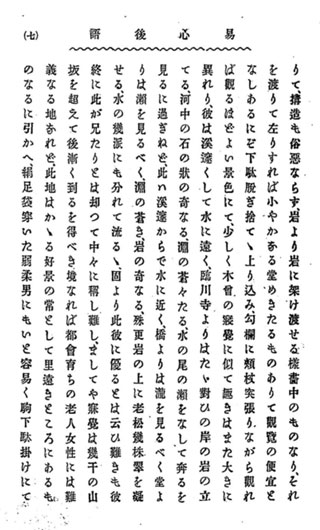 易心後語
(七)
りて、搆造も俗惡ならす岩より岩に架け渡せる樣畵中のものなり、それ
を渡りて左りすれば小やかなる堂めきたるものありて觀覽の便宜と
なしあるにぞ下駄脱ぎ捨てゝ上り込み勾欄に頬杖突張りながら觀れ
ば觀るほどよい景色にて、少しく木曾の寢覺に似て趣きはまた大きに
異れり、彼は溪濶くして水に遠く、臨川寺よりはたゞ對ひの岸の岩の立
てる、河中の石の狀の奇なる、淵の蒼々たる水の尾の瀬をなして奔るを
見るに過ぎねど、此ハ溪濶からで水に近く、橋よりは瀧を見るべく堂よ
りは瀬を見るべく、淵の蒼き岩の奇なる、殊更岩の上に老松幾株翠を凝
せる、水の幾派にも分れて流るゝ、固より此彼に優るとは云ひ難きも彼
終に此が兄たりとは却つて中々に稱し難し、ましてや寐覺は幾千の山
坂を超えて後漸く到るを得べき境なれば都會育ちの老人女性には難
義なる地なれど、此地はかゝる好景の常として里遠きところにあるも
のなるに引かへ、絹足袋穿いた弱柔男にもいと容易く駒下駄掛けにて